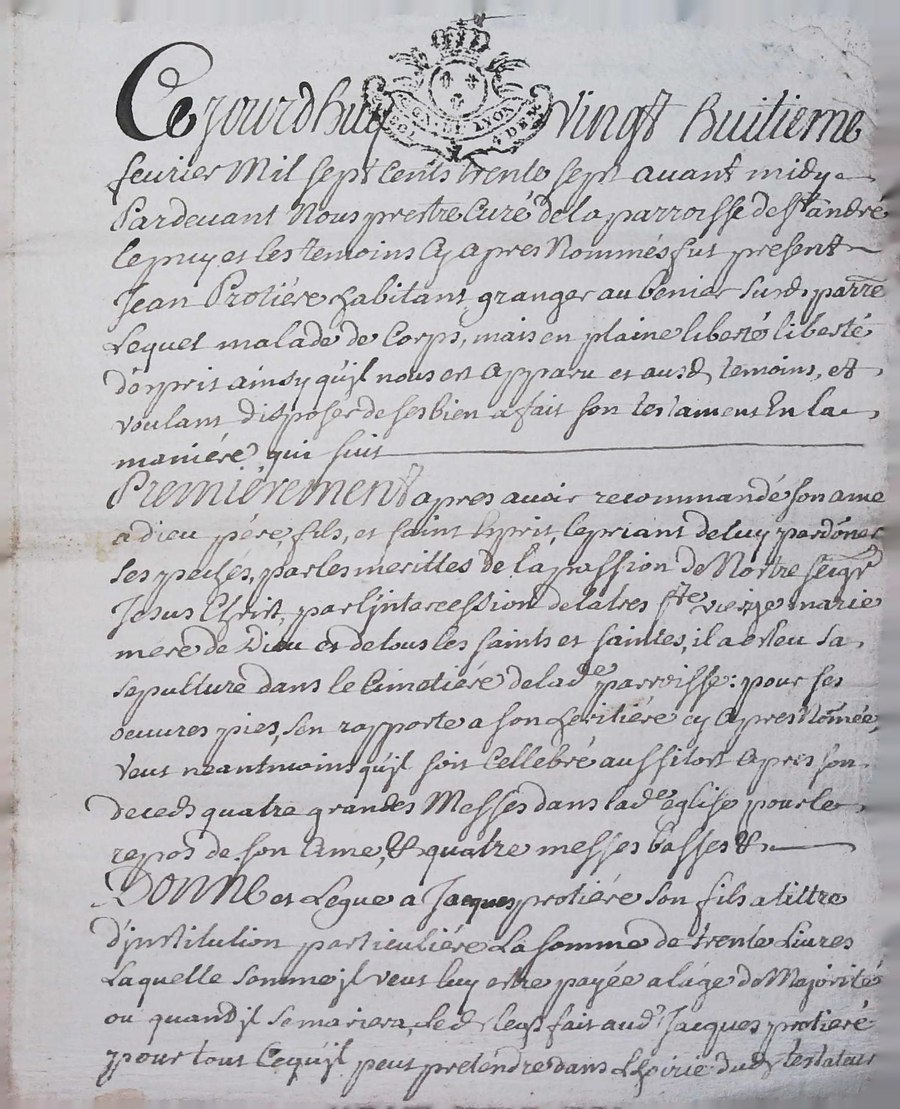 Ce jourdhuy vingt huitieme
GEN. DE LYON
4 DEN
fevrier Mil sept cents trente sept avant midy
Pardevant Nous prestre Curé de la parroisse de St andré
le puy et les temoins cy apres Nommés fut present
Jean Protiére habitant granger au benier susd. parre
Lequel malade de Corps, mais en plaine liberté liberté
d'esprit ainsy qu'jl nous est apparu et ausd. temoins, et
voulant disposer de ses bien a fait son testament En la
maniére qui suit
Premiérement apres avoir recommandé son ame
a dieu pére, fils, et saint Esprit, le priant de luy pardõner
ses pechés, par les merittes de la passion de Nostre seigr
Jesus Christ, par l'jntercession de la tres ste vierge marie
mere de Dieu et de tous les saints et saintes, il a esleu sa
sepulture dans le Cimetiére de lade parroisse: pour ses
oeuvres pies, s'en rapporte a son heritiére cy apres Nõmée,
veut neantmoins qu'jl soit Cellebré aussitost apres son
deceds quatre grandes Messes dans lade eglise pour le
repos de son ame, & quatre messes basses &
Donne et Legue a Jacques protiére son fils a tiltre
d'jnstitution particuliére La somme de trente Livres
Laquelle somme jl veut luy estre payée a l'âge de Majorité
ou quand jl se mariera, led. legs fait aud. Jacques protiere
pour tout Ce qu'jl peut pretendre dans L'hoirie dud. testateur